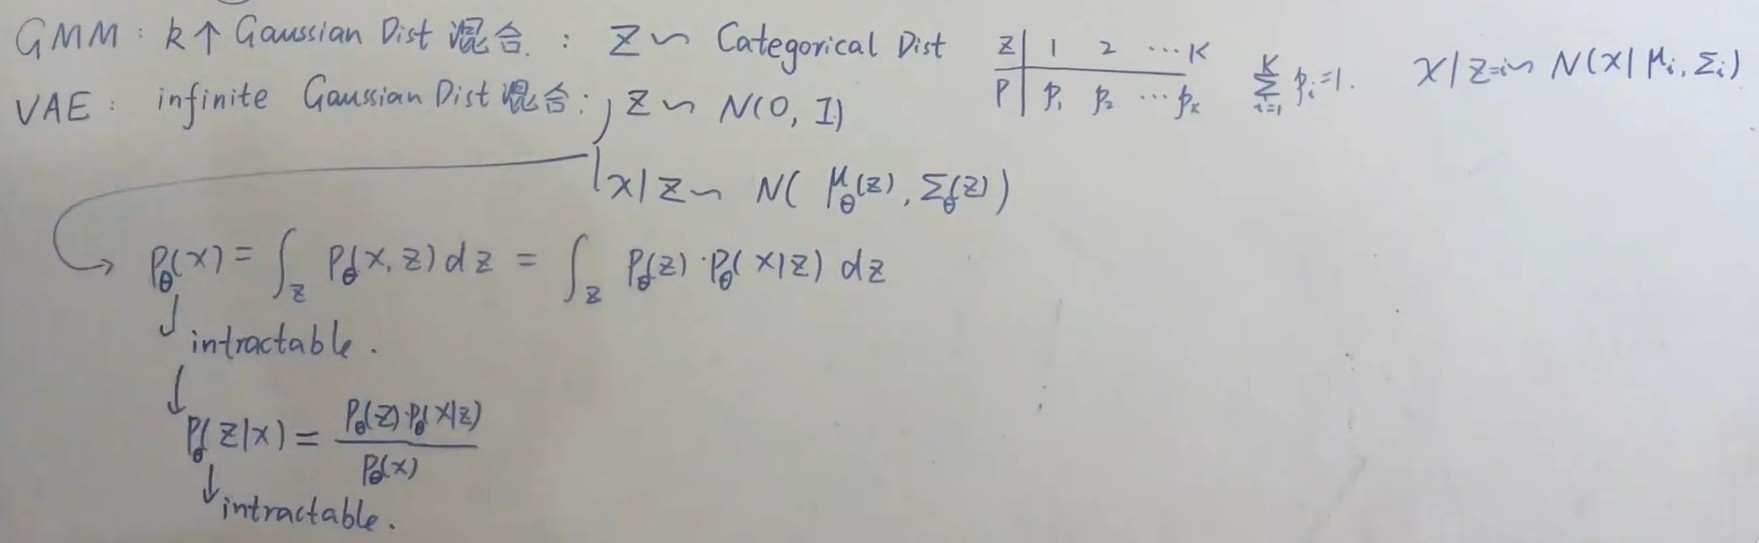 GMM : k个 Gaussian Dist 混合. : Z ~ Categorical Dist Z | 1 2 ⋯ K X|Z=i ~ N(X| μᵢ, Σᵢ)
P | p₁ p₂ ⋯ pₖ ∑ᵢ₌₁ᴷ pᵢ=1.
VAE : infinite Gaussian Dist 混合 : { Z ~ N(0, I)
X|Z ~ N( μ_θ(Z), Σ_θ(Z) )
→ P_θ(X) = ∫_Z P_θ(X, Z) dZ = ∫_Z P_θ(Z) · P_θ(X|Z) dZ
↓ intractable .
↓ P_θ(Z|X) = P_θ(Z)·P_θ(X|Z) / P_θ(X)
↓ intractable .